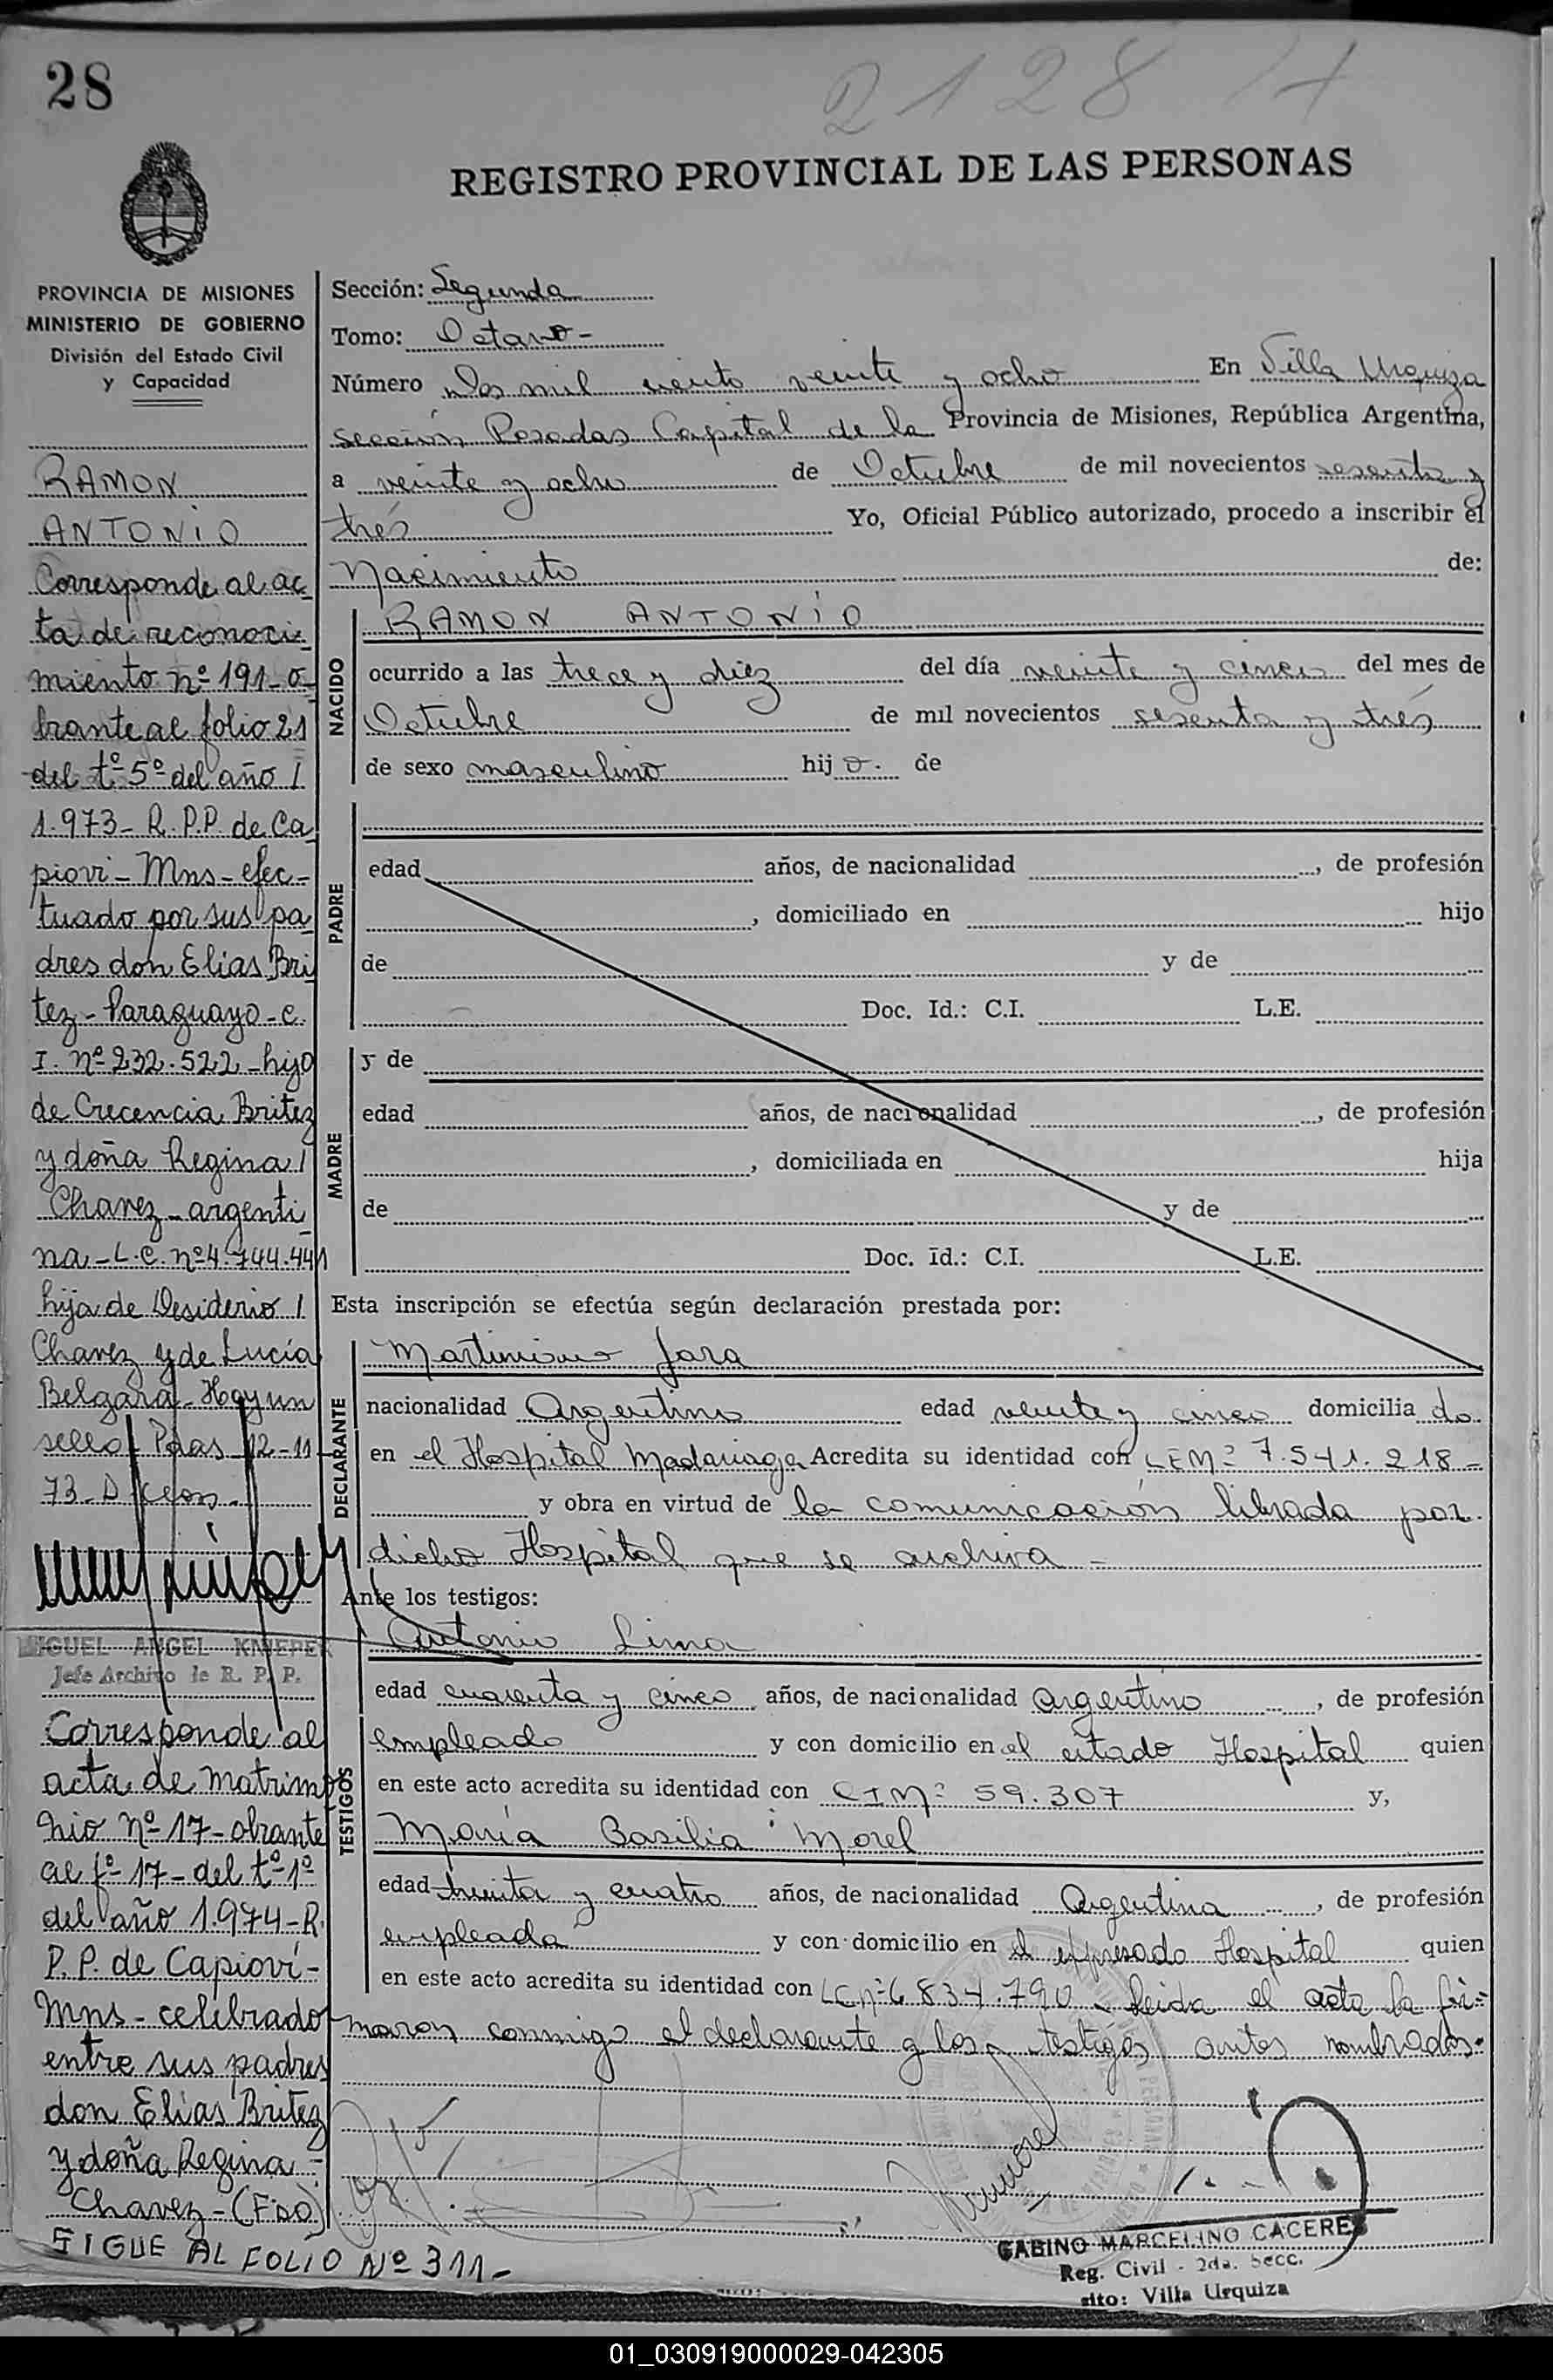 28
2128 H
REGISTRO PROVINCIAL DE LAS PERSONAS
PROVINCIA DE MISIONES
MINISTERIO DE GOBIERNO
División del Estado Civil
y Capacidad
RAMON
ANTONIO
Corresponde al ac
ta de reconoci-
miento nº 191-o-
brante al folio 21
del tº 5º del año /
1.973- R.P.P. de Ca
piovi- Mns- efec-
tuado por sus pa
dres don Elias Bri
tez- Paraguayo- C.
I. nº 232.522- hijo
de Crecencia Britez
y doña Regina /
Chavez- argenti
na- L.C. nº 4.744.441
hija de Desiderio /
Chavez y de Lucía
Belgara- Hay un
sello- Pdas 12-11-
73-
MIGUEL ANGEL KNIEPER
Jefe Archivo de R. P. P.
Corresponde al
acta de matrimo
nio nº 17- obrante
al fº 17- del tº 1º
del año 1.974- R.
P.P. de Capioví-
Mns- celebrado
entre sus padres
don Elias Britez
y doña Regina -
Chavez- (FDO)
SIGUE AL FOLIO Nº 311-
Sección: Segunda
Tomo: Octavo-
Número Dos mil ciento veinte y ocho En Villa Urquiza
sección Posadas Capital de la Provincia de Misiones, República Argentina,
a veinte y ocho de Octubre de mil novecientos sesenta y
trés Yo, Oficial Público autorizado, procedo a inscribir el
Nacimiento de:
NACIDO
RAMON ANTONIO
ocurrido a las trece y diez del día veinte y cinco del mes de
Octubre de mil novecientos sesenta y trés
de sexo masculino hijo. de
PADRE
edad años, de nacionalidad , de profesión
, domiciliado en hijo
de y de
Doc. Id.: C.I. L.E.
MADRE
y de
edad años, de nacionalidad , de profesión
, domiciliada en hija
de y de
Doc. Id.: C.I. L.E.
Esta inscripción se efectúa según declaración prestada por:
DECLARANTE
Martiniano Jara
nacionalidad Argentino edad veinte y cinco domicilia do
en el Hospital Madariaga Acredita su identidad con LEMº 7.541.218-
y obra en virtud de la comunicación librada por
dicho Hospital que se archiva-
Ante los testigos:
TESTIGOS
Antonio Lima
edad cuarenta y cinco años, de nacionalidad argentino , de profesión
empleado y con domicilio en el citado Hospital quien
en este acto acredita su identidad con CIMº 59.307 y,
María Basilia Morel
edad treinta y cuatro años, de nacionalidad Argentina , de profesión
empleada y con domicilio en el expresado Hospital quien
en este acto acredita su identidad con LCnº 6.834.790- leida el acta la fir=
maron conmigo el declarante y los testigos antes nombrados.
GABINO MARCELINO CACERES
Reg. Civil - 2da. Secc.
sito: Villa Urquiza
01_030919000029-042305